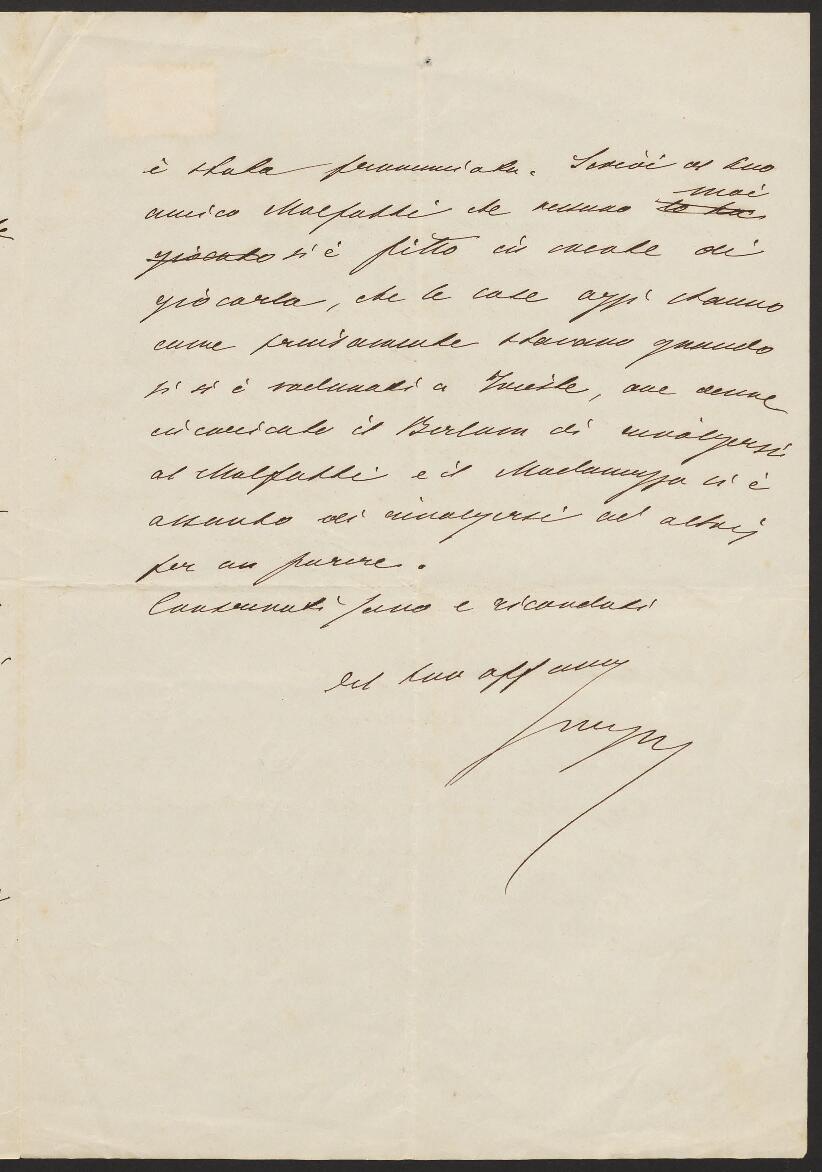 è stata pronunciata. Scrivi al tuo
mai
amico Malfatti che nessuno lo ha
giocato si è fitto in mente di
giocarla, che le cose oggi stanno
come precisamente stavano quando
si si è radunati a Trieste, ove venne
incaricato il Berlam di rivolgersi
al Malfatti e il Madamizza si è
assunto di rivolgersi ad altri
per un parere.
Conservati sano e ricordati
del tuo aff amico